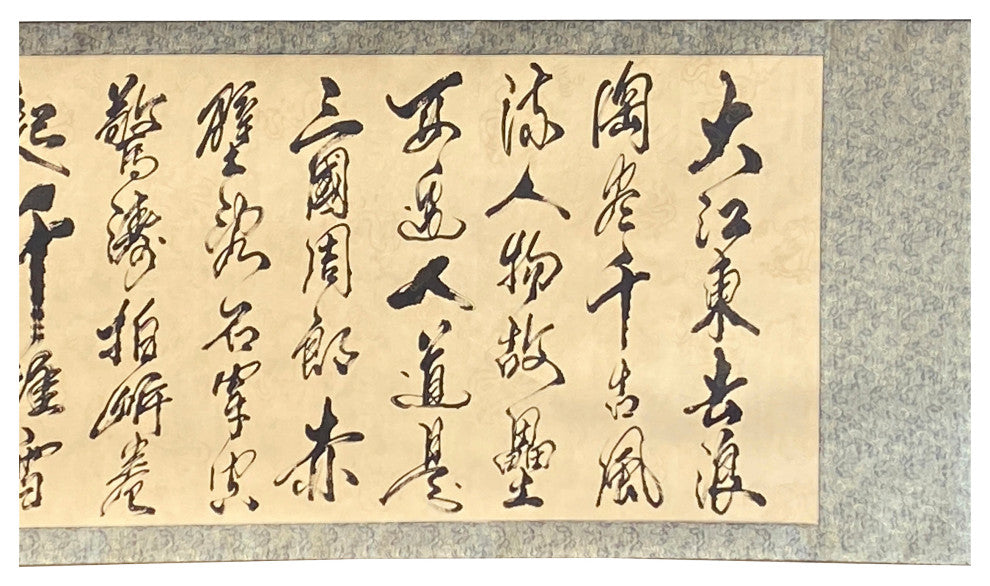 大江東去浪
淘盡千古風
流人物故壘
西邊人道是
三國周郎赤
壁亂石穿空
驚濤拍岸卷
起千堆雪